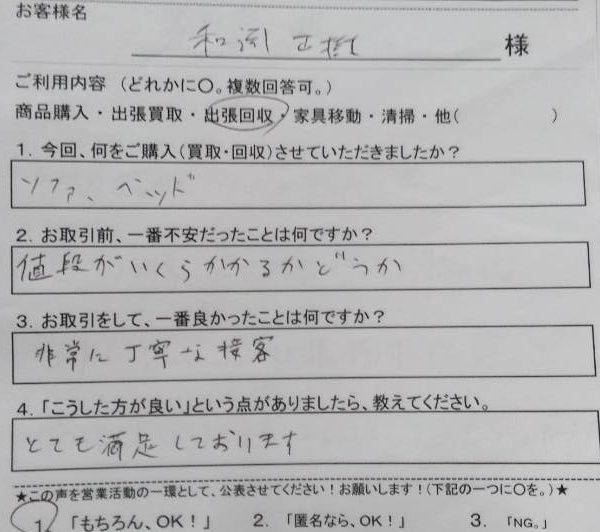 お客様名
和 正樹 様
ご利用内容 (どれかに〇。複数回答可。)
商品購入・出張買取・出張回収・家具移動・清掃・他( )
1. 今回、何をご購入(買取・回収)させていただきましたか?
ソファ、ベッド
2. お取引前、一番不安だったことは何ですか?
値段がいくらかかるかどうか
3. お取引をして、一番良かったことは何ですか?
非常に丁寧な接客
4. 「こうした方が良い」という点がありましたら、教えてください。
とても満足しております
★この声を営業活動の一環として、公表させてください!お願いします!(下記の一つに〇を。)★
1. 「もちろん、OK!」 2. 「匿名なら、OK!」 3. 「NG。」